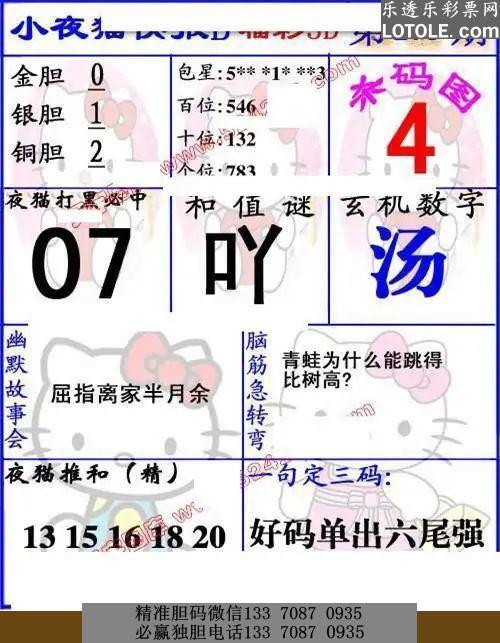 乐透乐彩票网
LOTOLE.COM
小夜猫快报D 福彩3D 第 期
金胆 0
银胆 1
铜胆 2
包星:5** *1* **3
百位:546
十位:132
个位:783
杀码图
4
夜猫打黑必中
07
和值谜
吖
玄机数字
汤
幽默故事会
屈指离家半月余
脑筋急转弯
青蛙为什么能跳得
比树高?
夜猫推和（精）
13 15 16 18 20
一句定三码:
好码单出六尾强
精准胆码微信133 7087 0935
必赢独胆电话133 7087 0935